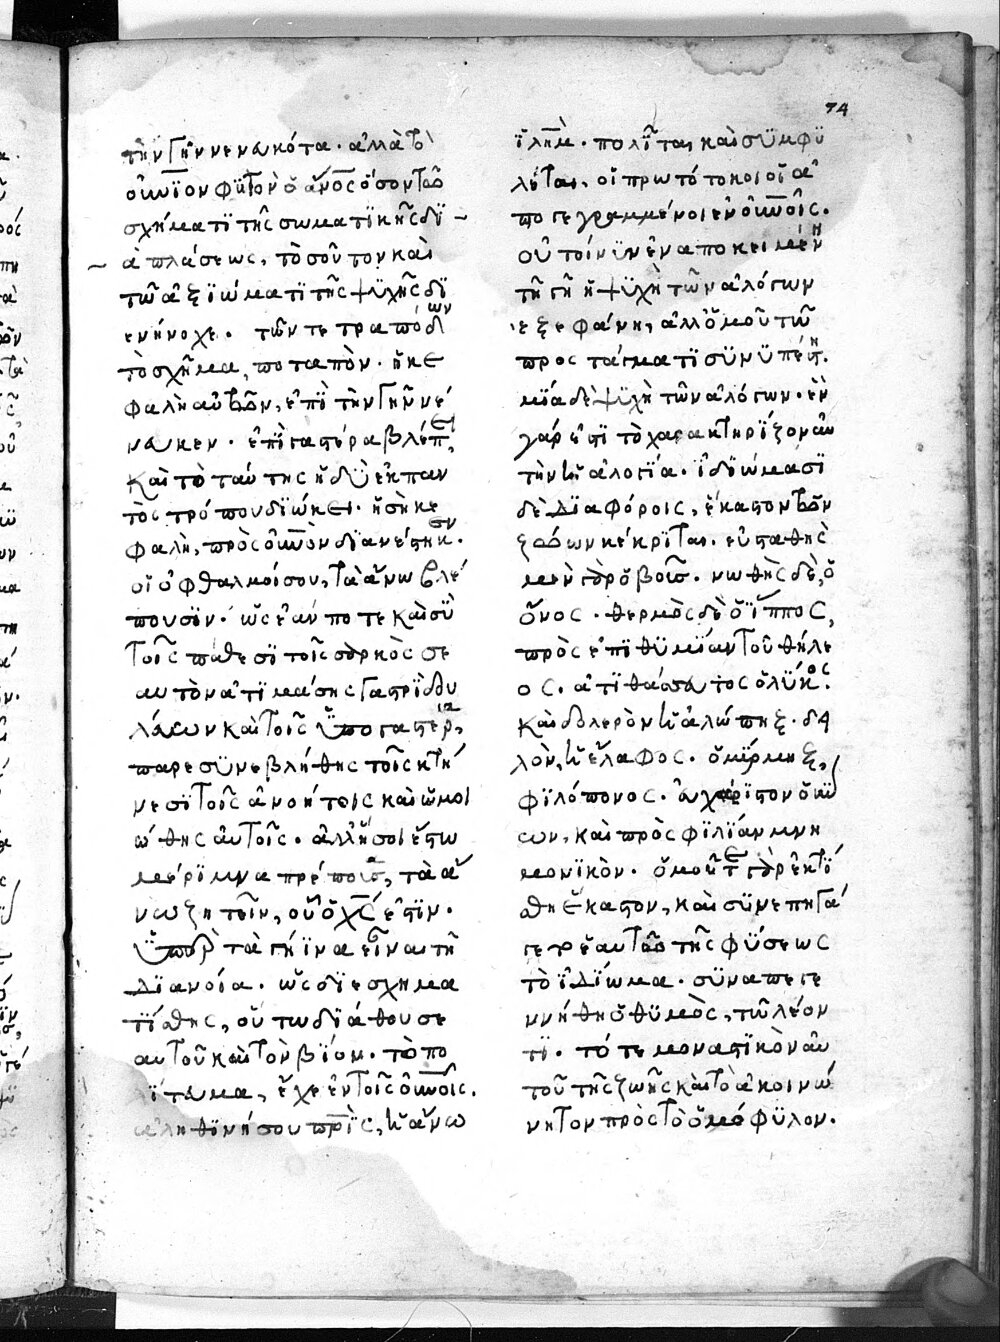 74
τὴν γῆν νενευκότα· ἀλλὰ τὸ
οὐνῖον φυτὸν ὁ ἄνος ὅσον τῶ
σχήματι τῆς σωματικῆς δι
απλάσεως, τοσοῦτον καὶ
τῶ ἀξιώματι τῆς ψυχῆς δι
ενήνοχε. τῶν τετραπόδων
τὸ σχῆμα, ποταπὸν· ἡ κε
φαλὴ αὐτῶν, ἐπὶ τὴν γῆν νέ
νευκεν· ἐπὶ γαστέρα βλέπει,
καὶ τὸ ταύτης ἡδὺ ἐκ παν
τὸς τρόπου διώκει· ἡ σὴ κε
φαλὴ, πρὸς οὐνὸν διανέστηκεν.
οἱ ὀφθαλμοί σου, τὰ ἄνω βλέ
πουσιν· ὡς ἐάν ποτε καὶ σὺ
τοῖς πάθεσι τοῖς σαρκὸς σε
αυτὸν ἀτιμάσης γαστρὶ δου
λεύων καὶ τοῖς ὑπὸ γαστέρα,
παρεσυνεβλήθης τοῖς κτή
νεσι τοῖς ἀνοήτοις καὶ ὡμοι
ώθης αὐτοῖς. ἄλλη σοι ἔστω
μέριμνα πρέπουσα, τὰ ἄ
νω ζητεῖν, οὗ ὁ χς ἐστιν.
ὑπὲρ τὰ γήινα εἶναι τῆ
διανοία. ὡς διεσχημα
τίσθης, οὕτω διάθου σε
αυτοῦ καὶ τὸν βίον. τὸ πο
λίτευμα, ἔχε ἐν τοῖς οὐνοῖς.
ἀληθινή σου πρὶς, ἡ ἄνω
ἱλημ· πολῖται καὶ συμφυ
λέται, οἱ πρωτότοκοι οἱ ἀ
πογεγραμμένοι ἐν οὐνοῖς.
οὐ τοίνυν ἐναποκειμένη
τῆ γῆ ἡ ψυχὴ τῶν ἀλόγων
ἐξεφάνη, ἀλλ' ὁμοῦ τῶ
προστάγματι συνυπέστη.
μία δὲ ψυχὴ τῶν ἀλόγων· ἓν
γάρ ἐστι τὸ χαρακτηρίζον αὐ
τὴν ἡ ἀλογία. ἰδιώμασι
δὲ διαφόροις, ἕκαστον τῶν
ζώων κέκριται. εὐσταθὴς
μὲν γὰρ ὁ βοῦς· νωθὴς δὲ, ὁ
ὄνος· θερμὸς δὲ ὁ ἵππος,
πρὸς ἐπιθυμίαν τοῦ θήλε
ος. ἀτιθάσευτος ὁ λύκος.
καὶ δολερὸν ἡ ἀλώπηξ· δει
λὸν, ἡ ἔλαφος. ὁ μύρμηξ,
φιλόπονος. εὐχάριστον ὁ κύ
ων, καὶ πρὸς φιλίαν μνη
μονικὸν. ὁμοῦ τε γὰρ ἐκτί
σθη ἕκαστον, καὶ συνεπηγά
γετο ἑαυτῶ τῆς φύσεως
τὸ ἰδίωμα. συναπεγε
ννήθη ὁ θυμὸς, τῶ λέον
τι. τότε μοναστικὸν αὐ
τοῦ τῆς ζωῆς καὶ τὸ ἀκοινώ
νητον πρὸς τὸ ὁμόφυλον.